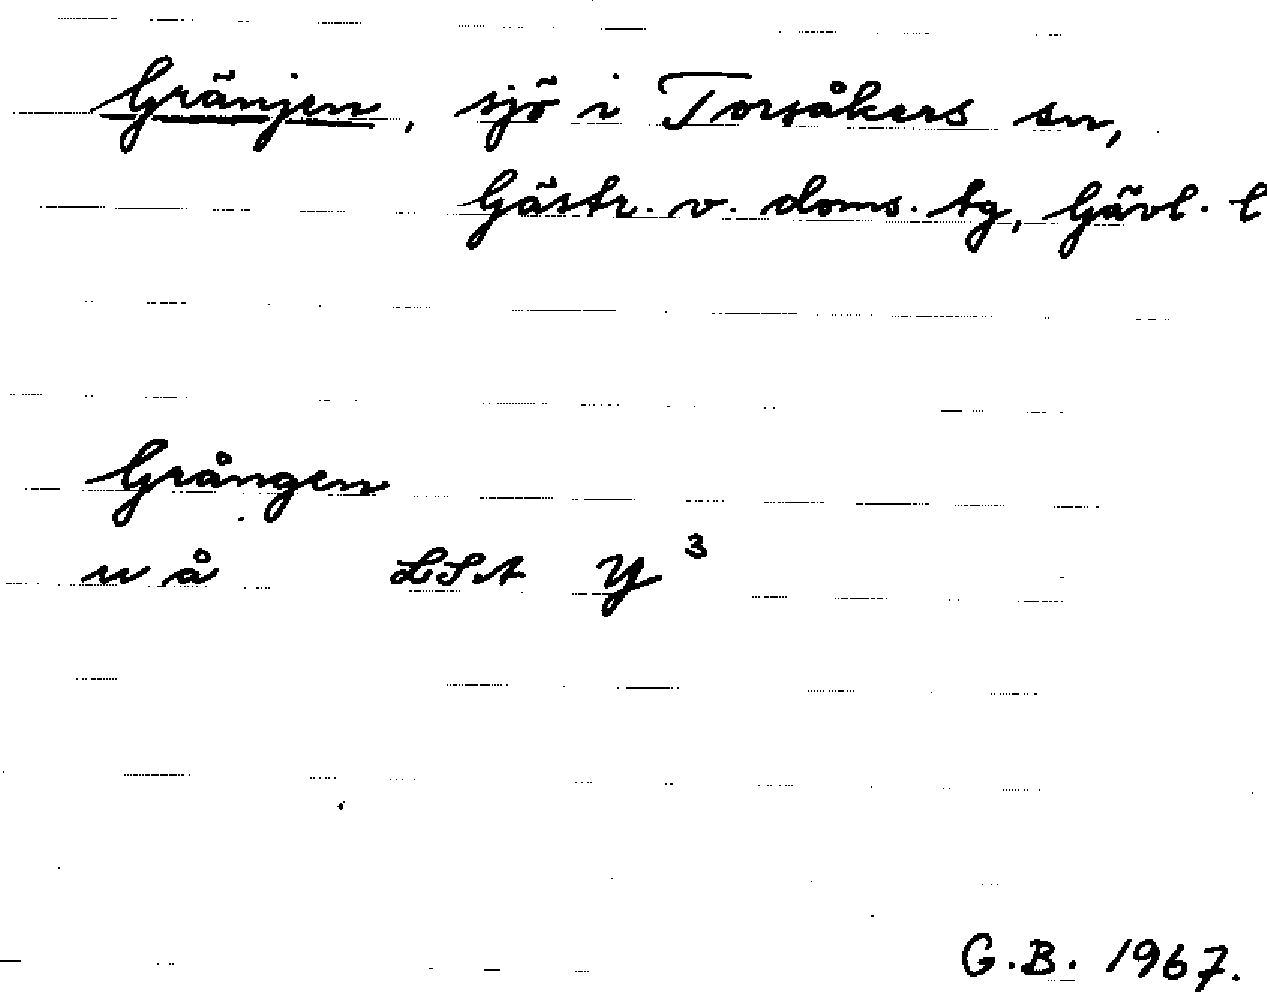 Gränjen, sjö i Torsåkers sn,
Gästr. v. doms. tg, Gävl. l
Grången
u å LSA Y 3
G.B. 1967.